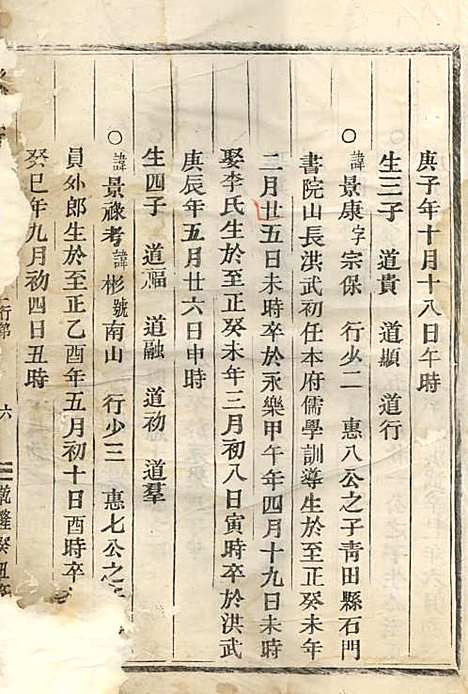 庚子年十月十八日午時
生三子 道貴 道顯 道行
○諱景康字宗保 行少二 惠八公之子靑田縣石門
書院山長洪武初任本府儒學訓導生於至正癸未年
二月廿五日未時卒於永樂甲午年四月十九日未時
娶李氏生於至正癸未年三月初八日寅時卒於洪武
庚辰年五月廿六日申時
生四子 道福 道融 道初 道羣
○諱景祿考諱彬號南山 行少三 惠七公之
員外郎生於至正乙酉年五月初十日酉時卒
癸巳年九月初四日丑時
行第 六 乾隆癸丑